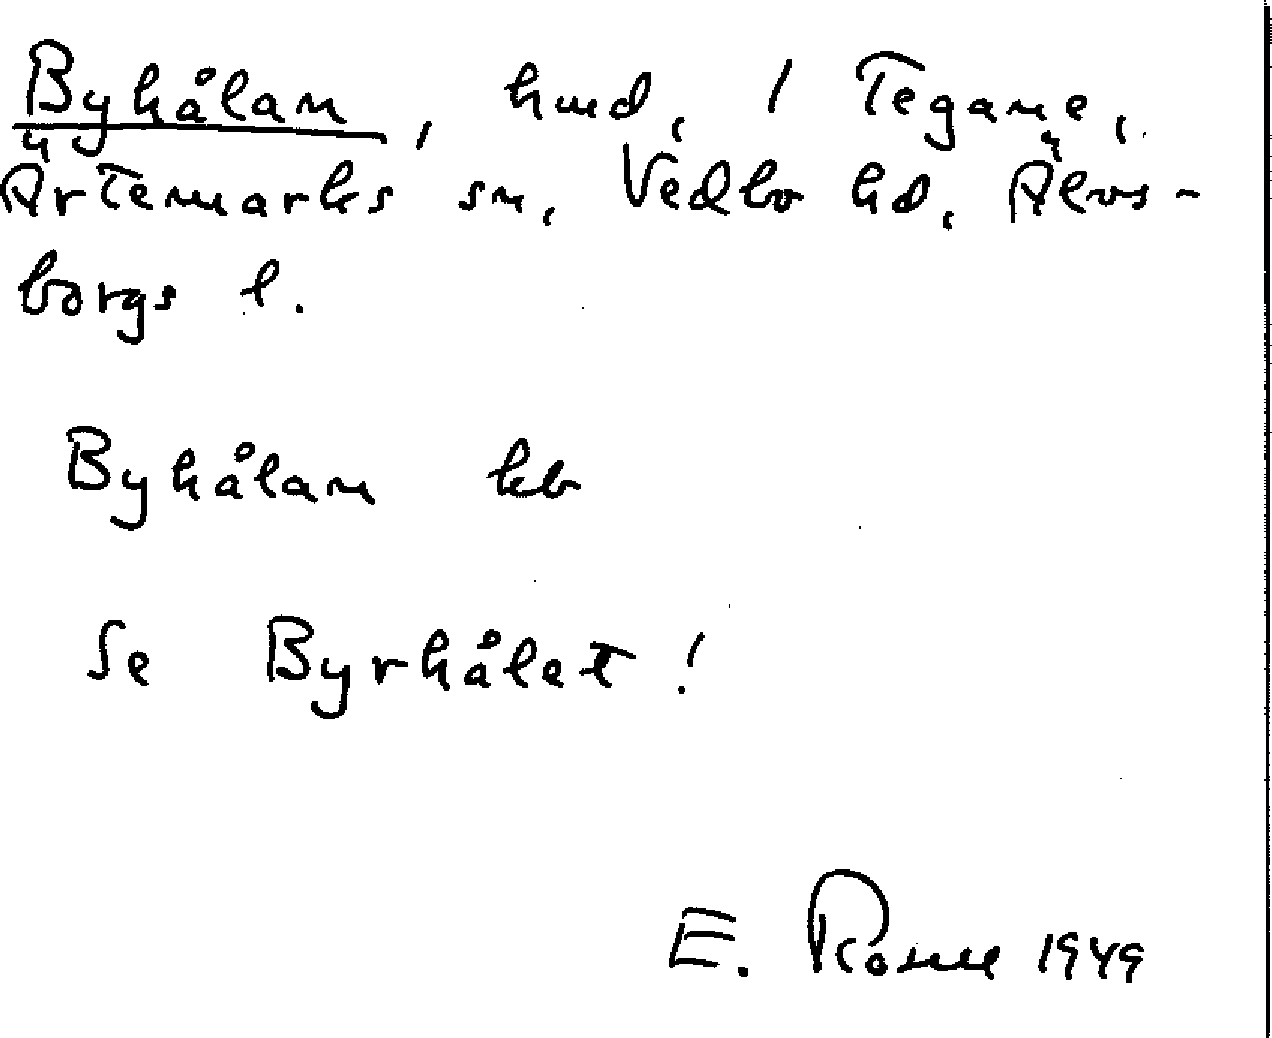 Byhålan, hmd, / Tegane,
Ärtemarks sn, Vedbo hd, Älvs-
borgs l.
Byhålan kb
Se Byrhålet!
E. 1949